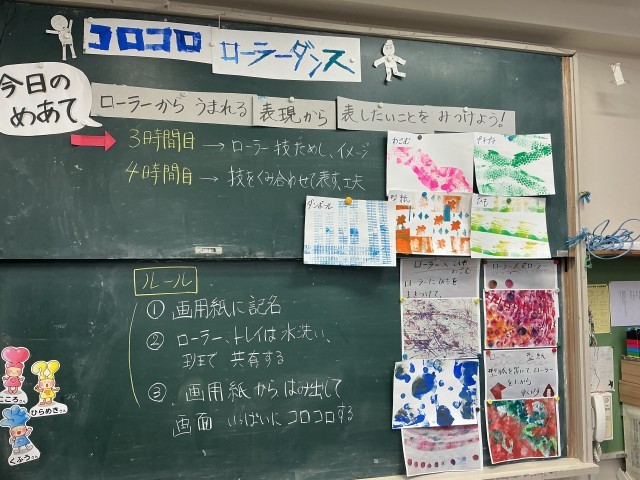 コロコロ
ローラーダンス
今日の
めあて
ローラーから うまれる 表現から 表したいことを みつけよう!
3時間目 → ローラー技ためし、イメージ
4時間目 → 技をくみ合わせて表す、工夫
ダンボール
型紙
ひも
ルール
① 画用紙に記名
② ローラー、トレイは水洗い、
班で 共有する
③ 画用紙からはみ出して
画面 いっぱいにコロコロする
こころさん
ひらめきさん
くふうさん
型紙